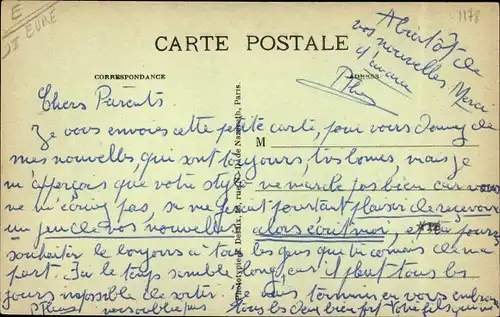 E
ST EURE
1178
CARTE POSTALE
CORRESPONDANCE
ADRESSE
A bientôt de
vos nouvelles Merci
d'avance
M
Chers Parents
Je vous envoie cette petite carte, pour vous donner de
mes nouvelles, qui sont toujours très bonnes, mais je
m'aperçois que votre stylo ne marche pas bien car vous
ne m'écrivez pas, sa me ferait pourtant plaisir de recevoir
un peu de vos nouvelles alors écrit moi, et
souhaiter le bonjours à tous les gens que tu connais de ma
part. J'ai le temps semble long, car il pleut tous les
jours impossible de sortir. Je vais terminer en vous embrassant
tous les deux bien fort Votre fils qui